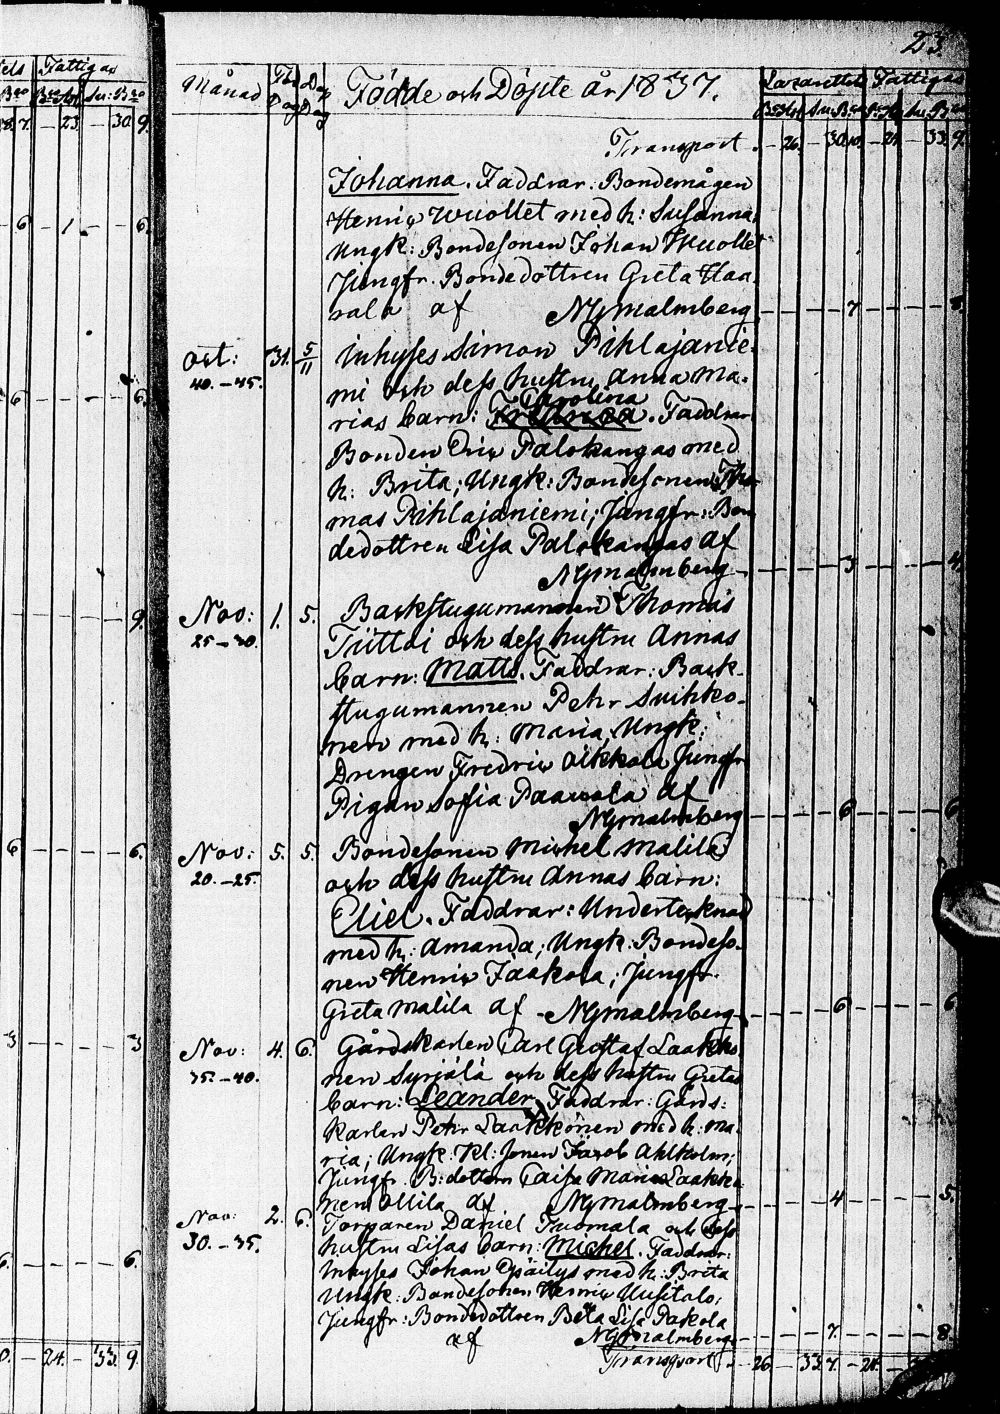 23
Månad Föd. Dag Döp. Dag Födde och Döpte år 1837. Lazarettet Fattigas
Transport . - 26. - 30. 10. - 21. - 33. 9.
Johanna. Faddrar: Bondemågen
Henric Wuollet med h: Susanna,
Ungk: Bondesonen Johan Wuollet
Jungfr. Bondedottren Greta Haa-
rala af NGMalmberg. - - - 7 - - - 8.
Oct: 31. 5/11 Inhyses Simon Pihlajanie-
40.-45. mi och dess hustru Anna Ma-
Carolina
rias barn: . Faddrar
Bonden Eric Palokangas med
h: Brita; Ungk: Bondesonen Tho-
mas Pihlajaniemi; Jungfr: Bon
dedottren Lisa Palokangas af
NGMalmberg - - - 3 - - - 4.
Nov: 1. 5. Backstugumannen Thomas
25-30. Tuttai och dess hustru Annas
barn: Matts. Faddrar: Back-
stugumannen Petr Suihko-
nen med h: Maria, Ungk:
Drengen Fredric Olkkola Jungfr
Pigan Sofia Paavola af
NGMalmberg - - - 6 - - - 6
Nov: 5. 5. Bondesonen Michel Malila
20.-25. och dess hustru Annas barn:
Eliel. Faddrar: Undertecknad
med h: Amanda; Ungk: Bondeso-
nen Henric Jaakola; Jungfr.
Greta Malila af NGMalmberg - - - 6 - - - 6.
Nov: 4. 6. Gårdskarlen Carl Gustaf Laakko-
35.-40. nen Syrjälä och dess hustru Gretas
barn: Leander, Faddrar: Gårds:
karlen Petr Laakkonen med h: Ma-
ria; Ungk: Kl: sonen Jacob Ahlholm;
Jungfr. B: dottern Caisa Maria Laakko-
nen Ollila af NGMalmberg - - - 4 - - - 5.
Nov: 2. 6. Torparen Daniel Tuomala och dess
30.-35. hustru Lisas barn: Michel. Faddrar:
Inhyses Johan med h: Brita
Ungk: Bondesonen Henric Uusitalo;
Jungfr: Bondedottren Beta Lisa Pakola
af NGMalmberg - - - 7. - - - 8.
Transport. - 26 - 33. 7. - 21. -